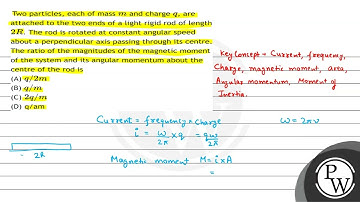 Two particles, each of mass m and charge q, are
attached to the two ends of a light rigid rod of length
2R. The rod is rotated at constant angular speed
about a perpendicular axis passing through its centre.
The ratio of the magnitudes of the magnetic moment
of the system and its angular momentum about the
centre of the rod is
(A) q/2m
(B) q/m
(C) 2q/m
(D) q/am
Key Concept - Current, frequency,
Charge, magnetic moment, area,
Angular momentum, Moment of
Inertia.
Current = frequency × Charge
i = ω/2π × q = qω/2π
ω = 2πν
2R
Magnetic moment M = i × A
=
PW